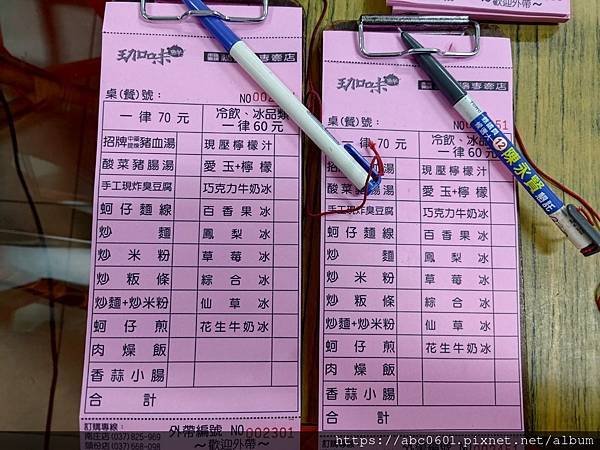 ~歡迎外帶~
珈咪
專賣店
桌(餐)號:
NO 002
一律 70 元
冷飲、冰品類
一律 60 元
招牌中藥豬血湯
現壓檸檬汁
酸菜豬腸湯
愛玉+檸檬
手工現炸臭豆腐
巧克力牛奶冰
蚵仔麵線
百香果冰
炒麵
鳳梨冰
炒米粉
草莓冰
炒粄條
綜合冰
炒麵+炒米粉
仙草冰
蚵仔煎
花生牛奶冰
肉燥飯
香蒜小腸
合計
訂購專線:
南庄店 (037) 825-969
頭份店 (037) 668-098
外帶編號 NO 002301
~歡迎外帶~
珈咪
專賣店
桌(餐)號:
51
一律 70 元
冷飲、冰品
一律 60 元
招牌 豬血湯
現壓檸檬汁
酸菜豬腸湯
愛玉+檸檬
手工現炸臭豆腐
巧克力牛奶冰
蚵仔麵線
百香果冰
炒麵
鳳梨冰
炒米粉
草莓冰
炒粄條
綜合冰
炒麵+炒米粉
仙草冰
蚵仔煎
花生牛奶冰
肉燥飯
香蒜小腸
合計
訂購專線:
12 陳永賢 懇託
https://abc0601.pixnet.net/album